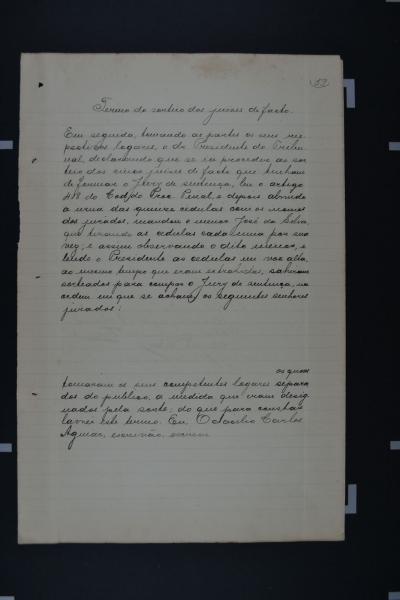 52
Termo do sorteio dos juizes de facto.
Em seguida, tomando as partes os seus res
pectivos logares, e do Presidente do Tribu
nal, declarando que se ia proceder ao sor
teio dos cinco juizes de facto que tinham
de formar o Jury de sentença, leu o artigo
418 do Cod. do Proc. Penal, e depois abrindo
a urna das quinze cedulas com os nomes
dos jurados, mandou o menor José da Silva,
que tirando as cedulas cada uma por sua
vez; e assim observando o dito menor, e
lendo o Presidente as cedulas em voz alta,
ao mesmo tempo que eram extrahidas, sahiram
sorteados para compor o Jury de sentença, na
ordem em que se acham, os seguintes senhores
jurados:
os quaes
tomaram os seus competentes logares separa
dos do publico, a medida que eram desig
nados pela sorte; do que para constar
lavrei este termo. Eu, Octacilio Carlos
Aguiar, escrivão, escrevi